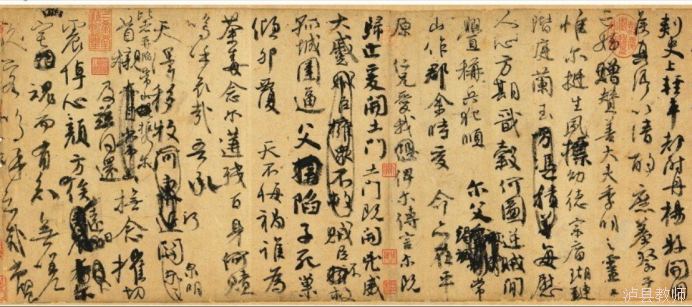 刺史上輕車都尉丹楊縣開國
侯真卿以清酌庶羞祭于
亡姪贈贊善大夫季明之靈曰
惟爾挺生夙標幼德宗廟瑚璉
階庭蘭玉方憑積善每慰
人心方期戩穀何圖逆賊閒
釁稱兵犯順爾父竭誠常
山作郡余時受命亦在平
原仁兄愛我俾爾傳言爾既
歸止爰開土門土門既開兇威
大蹙賊臣擁眾不救賊臣不救
孤城圍逼父陷子死巢
傾卵覆天不悔禍誰為
荼毒念爾遘殘百身何贖
嗚乎哀哉吾承
天澤移牧河關泉明
比者再陷常山攜爾
首櫬及茲同還撫念摧切
震悼心顏方俟遠日
卜爾幽宅魂而有知無嗟
久客嗚呼哀哉尚饗
泸县教师